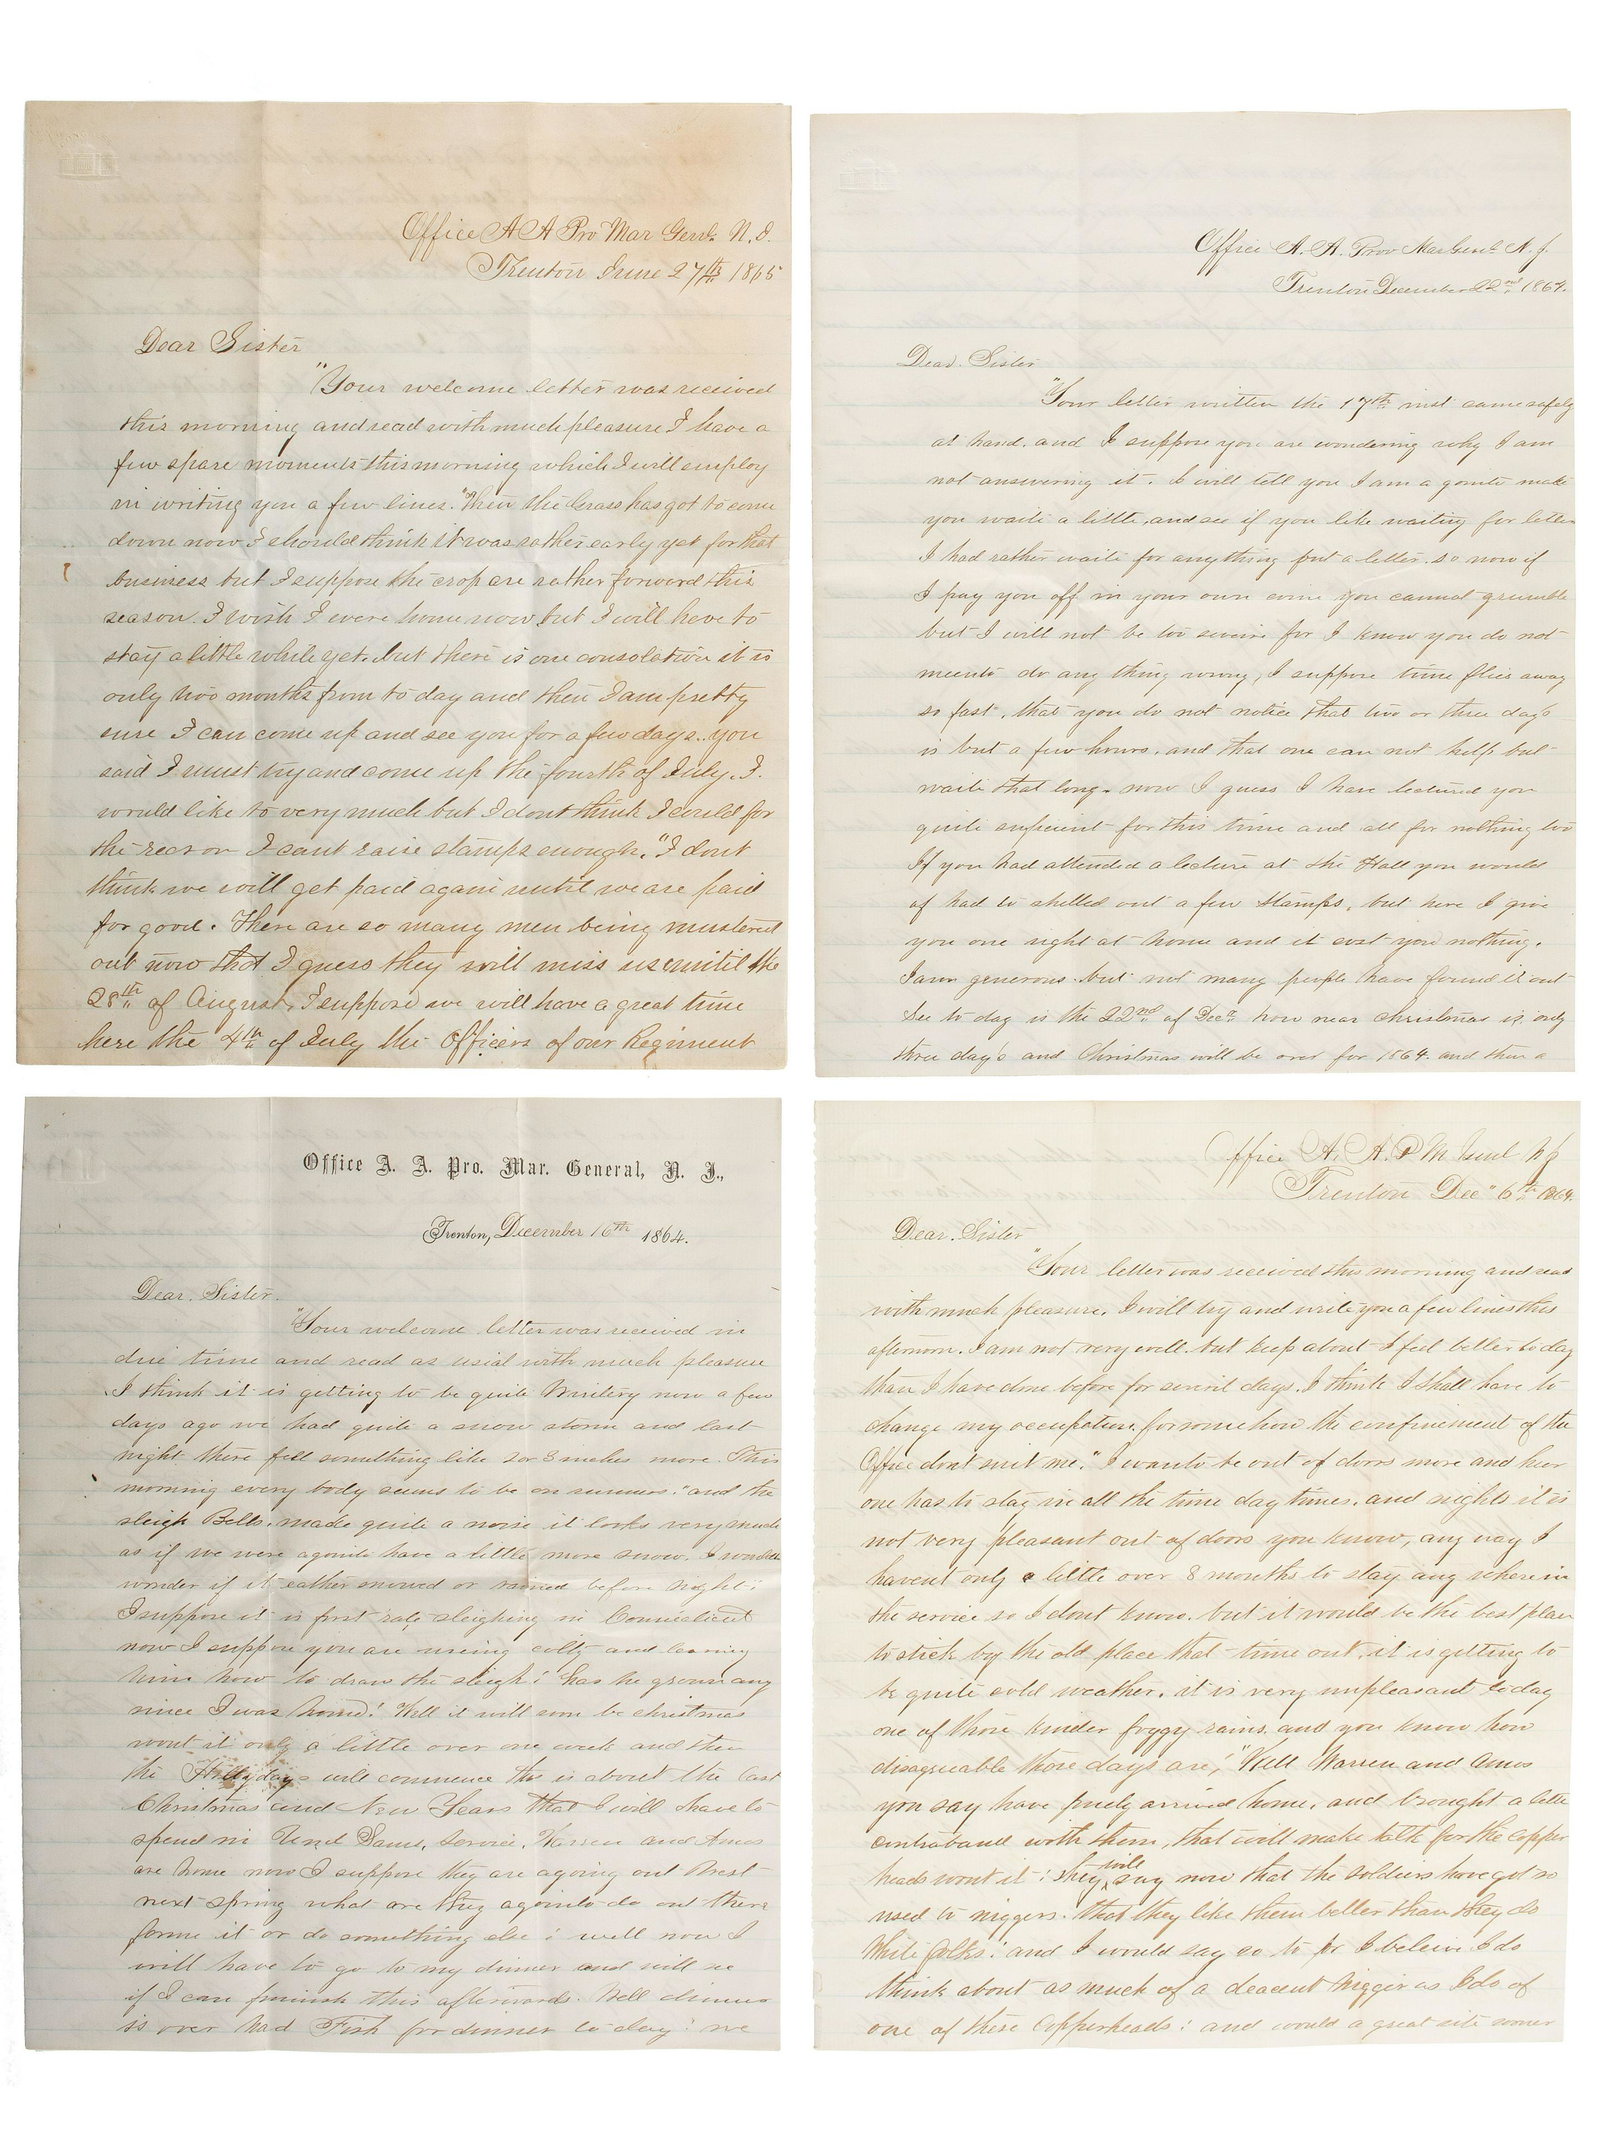 Office A A Pro Mar Genl. N. J.
Trenton June 27th 1865
Dear Sister
"Your welcome letter was received
this morning and read with much pleasure I have a
few spare moments this morning which I will employ
in writing you a few lines. "Then the Grass has got to come
down now I should think it was rather early yet for that
business but I suppose the crop are rather forward this
season. I wish I were home now but I will have to
stay a little while yet. but there is one consolation it is
only two months from to day and then I am pretty
sure I can come up and see you for a few days. you
said I must try and come up the fourth of July. I.
would like to very much but I dont think I could for
the reason I cant raise stamps enough. "I dont
think we will get paid again until we are paid
for good. There are so many men being mustered
out now that I guess they will miss us until the
28th of August, I suppose we will have a great time
here the 4th of July the Officers of our Regiment
Office A. A. Prov Mar Genl. N. J.
Trenton December 22nd 1864.
Dear. Sister
"Your letter written the 17th inst came safely
at hand. and I suppose you are wondering why I am
not answering it. I will tell you I am a gointo make
you waite a little, and see if you like waiting for letter
I had rather waite for anything but a letter. so now if
I pay you off in your own coin you cannot grumble
but I will not be too severe for I know you do not
meento do any thing wrong, I suppose time flies away
so fast, that you do not notice that two or three day's
is but a few hours. and that one can not help but
waite that long. now I guess I have lectured you
quite suficient for this time and all for nothing too
If you had attended a lecture at the Hall you would
of had to shelled out a few Stamps, but here I give
you one right at home and it cost you nothing.
I am generous but not many people have found it out
See to day is the 22nd of Decr. how near christmas is, only
three day's and Christmas will be over for 1864. and then a
Office A. A. Pro. Mar. General, N. J.,
Trenton, December 16th 1864.
Dear. Sister.
"Your welcome letter was received in
due time and read as usial with much pleasure
I think it is getting to be quite Wintery now a few
days ago we had quite a snow storm and last
night there fell something like 2 or 3 inches more. This
morning every body seems to be on runners. "and the
sleigh Bells. made quite a noise it looks very much
as if we were agointo have a little more snow. I wouldnt
wonder if it eather snowed or rained before night:
I suppose it is first rate sleighing in Connecticut
now I suppose you are useing colty and learning
him how to draw the sleigh! has he grown any
since I was home! Well it will soon be christmas
wont it only a little over one week and then
the Hollydays will commence this is about the last
Christmas and New Years that I will have to
spend in Uncl Sams, service. Warren and Amos
are home now I suppose they are agoing out West
next spring what are they agointo do out there
farme it or do something else: well now I
will have to go to my dinner and will see
if I can finish this afterwards. Well dinner
is over had Fish for dinner to day: we
Office A. A. P M Genl N J
Trenton Dec" 6th 1864.
Dear. Sister
"Your letter was received this morning and read
with much pleasure. I will try and write you a few lines this
afternoon. I am not very well. but keep about I feel better to day
than I have done before for sevril days. I think I shall have to
change my occupation. for some how the confinement of the
Office dont suit me." I want to be out of doors more and hear
one has to stay in all the time day times. and nights it is
not very pleasant out of doors you know, any way I
havent only a little over 8 months to stay any where in
the service so I dont know. but it would be the best plan
to stick by the old place that time out, it is getting to
be quite cold weather. it is very unpleasant to day
one of those kinder foggy rains. and you know how
disagreeable those days are," Well Warren and Amos
you say have finely arrived home. and brought a little
contraband with them, that will make talk for the copper
heads wont it! they will say now that the soldiers have got so
used to niggers. that they like them better than they do
White folks! and I would say so to for I beleive I do
think about as much of a deacent nigger as I do of
one of these Copperheads! and would a great site sooner